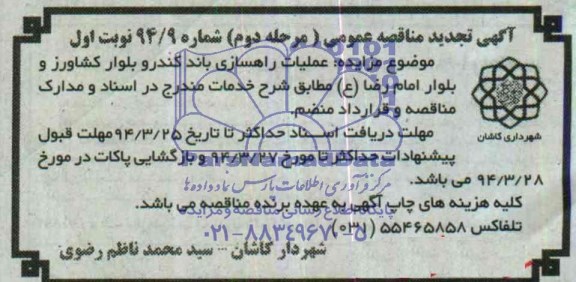 آگهی تجدید مناقصه عمومی ( مرحله دوم) شماره ۹۴/۹ نوبت اول
موضوع مزایده: عملیات راهسازی باند کندرو بلوار کشاورز و
بلوار امام رضا (ع) مطابق شرح خدمات مندرج در اسناد و مدارک
مناقصه و قرارداد منضم.
شهرداری کاشان
مهلت دریافت اسناد حداکثر تا تاریخ ۹۴/۳/۲۵ مهلت قبول
پیشنهادات حداکثر تا مورخ ۹۴/۳/۲۷ و بازگشایی پاکات در مورخ
۹۴/۳/۲۸ می باشد.
مرکز فرآوری اطلاعات پارس نماد داده ها
کلیه هزینه های چاپ آگهی به عهده برنده مناقصه می باشد.
پایگاه اطلاع رسانی مناقصه و مزایده
تلفاکس ۵۵۴۶۵۸۵۸ (۰۳۱)
۰۲۱-۸۸۳۴۹۶۷۰-۵
شهردار کاشان - سید محمد ناظم رضوی